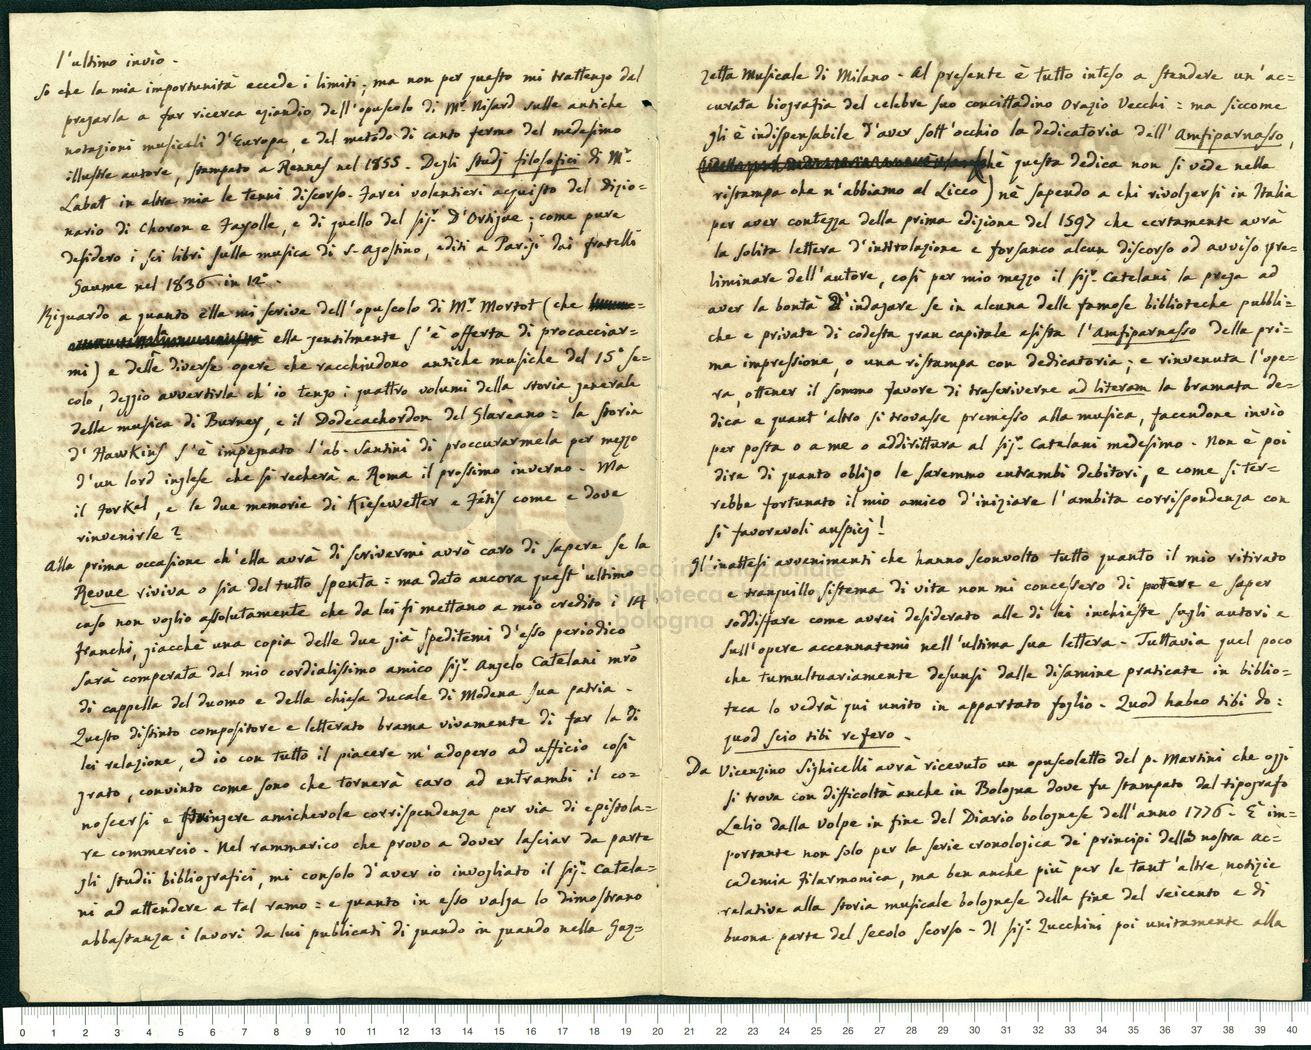 l'ultimo invio.
So che la mia importunità eccede i limiti; ma non per questo mi trattengo dal
pregarla a far ricerca eziandio dell'opuscolo di Mr. Nisard sulle antiche
notazioni musicali d'Europa, e del metodo di canto fermo del medesimo
illustre autore, stampato a Rennes nel 1855. Degli studj filosofici di Mr.
Labat in altra mia le tenni discorso. Farei volantieri acquisto del dizio=
nario di Choron e Fayolle, e di quello del sigr. D'Ortigue; come pure
desidero i sei libri sulla musica di S. Agostino, editi a Parigi dai fratelli
Gaume nel 1836 in 12°.
Riguardo a quanto ella mi scrive dell'opuscolo di Mr. Mortot (che
ella gentilmente s'è offerta di procacciar=
mi) e delle diverse opere che racchiudono antiche musiche del 15° se=
colo, deggio avvertirla ch'io tengo i quattro volumi della storia generale
della musica di Burney, e il Dodecachordon del Glareano: la storia
d'Hawkins s'è impegnato l'ab. Santini di proccurarmela per mezzo
d'un lord inglese che si recherà a Roma il prossimo inverno. Ma
il Forkel, e le due memorie di Kiesewetter e Fétis come e dove
rinvenirle?
Alla prima occasione ch'ella avrà di scrivermi avrò caro di sapere se la
Revue riviva o sia del tutto spenta: ma dato ancora quest'ultimo
caso non voglio assolutamente che da lei si mettano a mio credito i 14
franchi, giacchè una copia delle due già speditemi d'esso periodico
sarà comperata dal mio cordialissimo amico sigr. Angelo Catelani mrõ
di cappella del duomo e della chiesa ducale di Modena sua patria.
Questo distinto compositore e letterato brama vivamente di far la di
lei relazione, ed io con tutto il piacere m'adopero ad ufficio così
grato, convinto come sono che tornerà caro ad entrambi il co=
noscersi e stringere amichevole corrispondenza per via di epistola=
re commercio. Nel rammarico che provo a dover lasciar da parte
gli studii bibliografici, mi consolo d'aver io invogliato il sigr. Catela=
ni ad attendere a tal ramo: e quanto in esso valga lo dimostrano
abbastanza i lavori da lui publicati di quando in quando nella Gaz=
zetta Musicale di Milano. Al presente è tutto inteso a stendere un'ac=
curata biografia del celebre suo concittadino Orazio Vecchi: ma siccome
gli è indispensabile d'aver sott'occhio la dedicatoria dell'Amfiparnasso,
(chè questa dedica non si vede nella
ristampa che n'abbiamo al Liceo) nè sapendo a chi rivolgersi in Italia
per aver contezza della prima edizione del 1597 che certamente avrà
la solita lettera d'intitolazione e forsanco alcun discorso od avviso pre=
liminare dell'autore, così per mio mezzo il sigr. Catelani la prega ad
aver la bontà d'indagare se in alcuna delle famose biblioteche pubbli=
che e private di codesta gran capitale esista l'Amfiparnasso della pri=
ma impressione, o una ristampa con dedicatoria; e rinvenuta l'ope=
ra, ottener il sommo favore di trascriverne ad literam la bramata de=
dica e quant'altro si trovasse premesso alla musica, facendone invio
per posta o a me o addirittura al sigr. Catelani medesimo. Non è poi
dire di quanto obligo le saremmo entrambi debitori, e come si ter=
rebbe fortunato il mio amico d'iniziare l'ambita corrispondenza con
sì favorevoli auspicj!
Gl'inattesi avvenimenti che hanno sconvolto tutto quanto il mio ritirato
e tranquillo sistema di vita non mi concessero di potere e saper
soddisfare come avrei desiderato alle di lei inchieste sugli autori e
sull'opere accennatemi nell'ultima sua lettera. Tuttavia quel poco
che tumultuariamente desunsi dalle disamine praticate in biblio=
teca lo vedrà qui unito in appartato foglio. Quod habeo tibi do:
quod scio tibi refero.
Da Vicenzino Sighicelli avrà ricevuto un opuscoletto del p. Martini che oggi
si trova con difficoltà anche in Bologna dove fu stampato dal tipografo
Lelio dalla Volpe in fine del Diario bolognese dell'anno 1776. È im=
portante non solo per la serie cronologica de' principi della nostra Ac=
cademia Filarmonica, ma ben anche più per le tant'altre notizie
relative alla storia musicale bolognese della fine del seicento e di
buona parte del secolo scorso. Il sigr. Zucchini poi unitamente alla
museo internazionale
biblioteca della musica
bologna